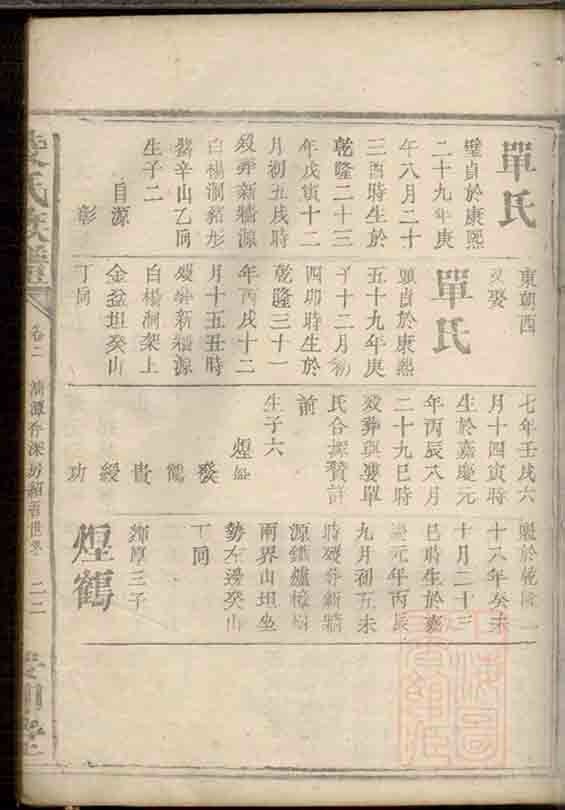 單氏
璧貞於康熙
二十九年庚
午八月二十
三酉時生於
乾隆二十三
年戊寅十二
月初五戌時
歿葬新牆源
白楊洞豬形
嘴辛山乙向
生子二
自源
彰
東朝西
又娶
單氏
頭貞於康熙
五十九年庚
子十二月初
四卯時生於
乾隆三十一
年丙戌十二
月十五丑時
歿葬新牆源
白楊洞架上
金盆坦癸山
丁向
七年壬戌六
月十四寅時
生於嘉慶元
年丙辰八月
二十九巳時
歿葬與婁單
氏合擇贊詳
前
生子六
煌
發
鶴
貴
綬
功
殿於乾隆二
十八年癸未
十月二十三
巳時生於嘉
慶元年丙辰
九月初五未
時歿葬新牆
源鐵爐樟樹
兩界山坦坐
勢左邊癸山
丁向
煌鶴
錦厚三子
氏族譜
卷二
世系
二二